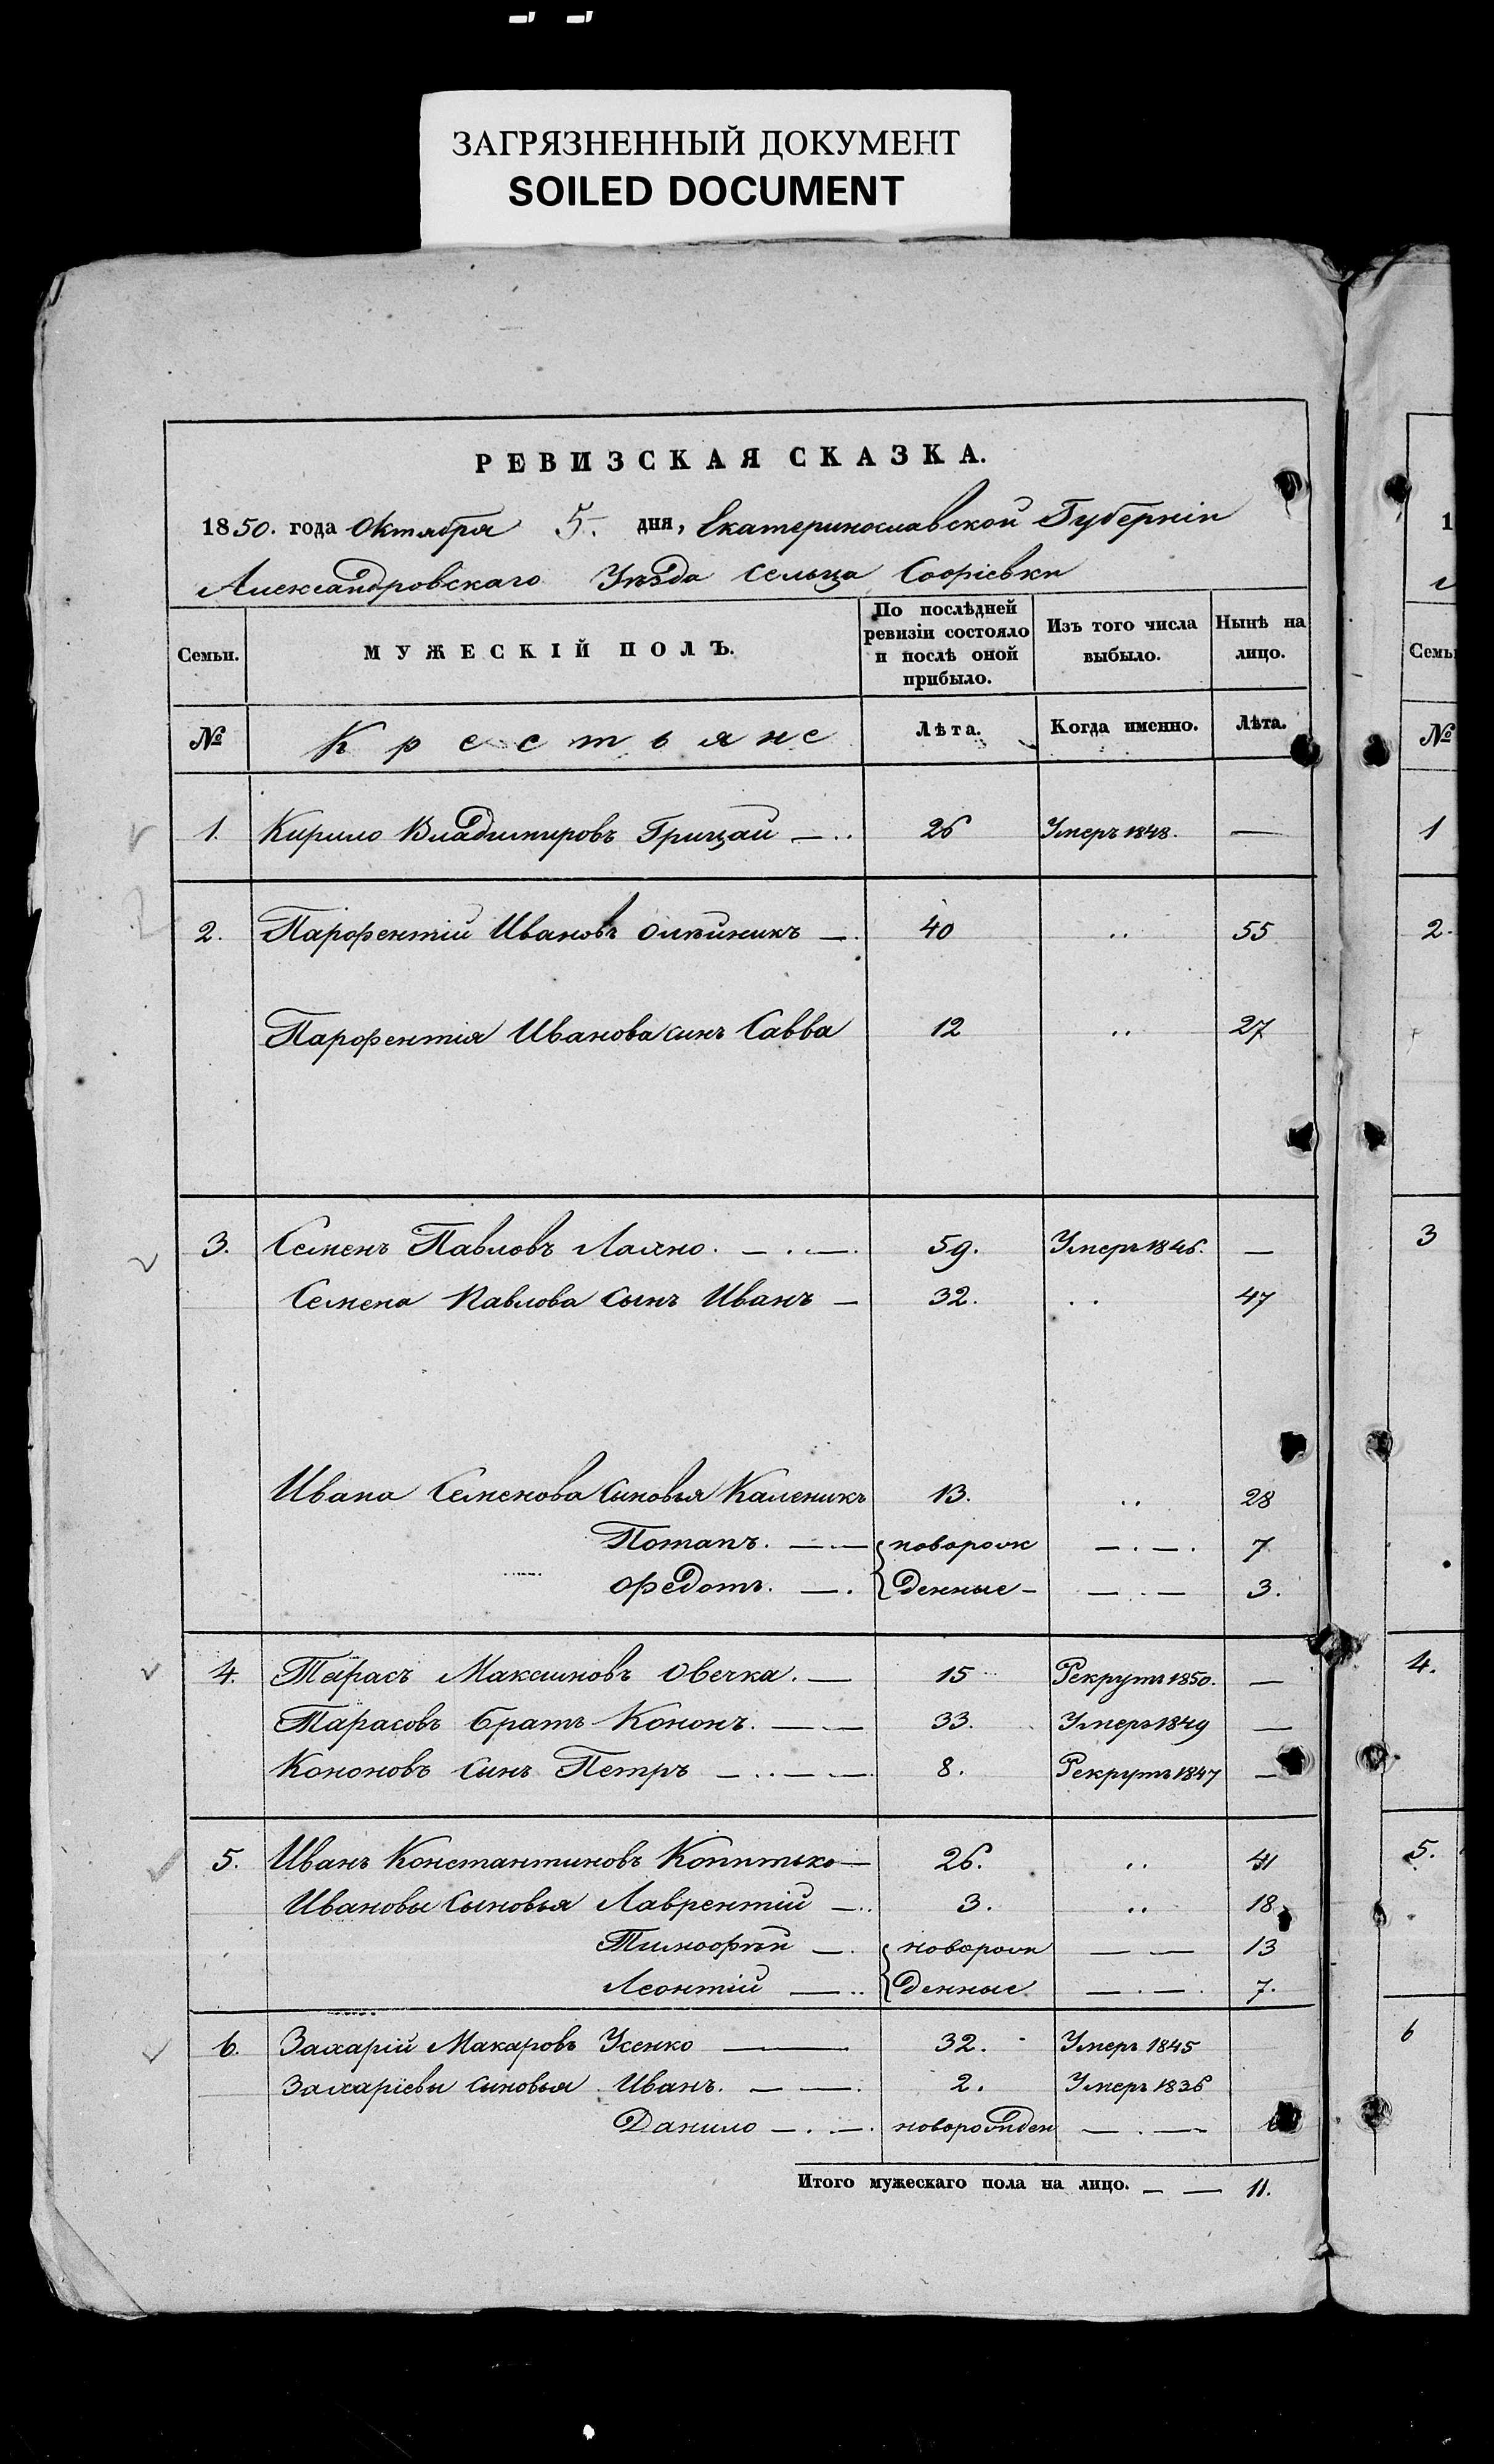 ЗАГРЯЗНЕННЫЙ ДОКУМЕНТ
SOILED DOCUMENT
РЕВИЗСКАЯ СКАЗКА.
1850. года Октября 5. дня, Екатеринославской Губерніи
Александровскаго Уѣзда сельца Софіевки
Семьи. МУЖЕСКІЙ ПОЛЪ. По послѣдней ревизіи состояло и послѣ оной прибыло. Изъ того числа выбыло. Нынѣ на лицо. Семь
№ Крестьяне Лѣта. Когда именно. Лѣта. №
1. Кирило Владимировъ Грицай 26 Умеръ 1848. — 1
2. Парфентій Ивановъ Олѣйникъ — 40 .. 55 2.
Парфентія Иванова сынъ Савва 12 .. 27
3. Семенъ Павловъ Лахно. — . — . 59. Умеръ 1846. — 3
Семена Павлова сынъ Иванъ — 32. .. 47
Ивана Семенова сыновья Каленикъ 13. .. 28
Потапъ. — . — { новорож — . — . 7
Федотъ. — . { денные — — . — 3.
4. Тарасъ Максимовъ Овечка. — 15 Рекрутъ 1850. — 4.
Тарасовъ братъ Кононъ. — — 33. Умеръ 1849 —
Кононовъ сынъ Петръ — .. — — . 8. Рекрутъ 1847 —
5. Иванъ Константиновъ — 26. .. 41 5.
Ивановы сыновья Лаврентій — .. 3. .. 18
Тимофѣй — . { новорож — — 13
Леонтій — .. { денные — . — . 7.
6. Захарій Макаровъ Усенко — 32. Умеръ 1845 6
Захаріевы сыновья Иванъ. — — . 2. Умеръ 1836
Данило — . — . новорожден — . —
Итого мужескаго пола на лицо. — — 11.